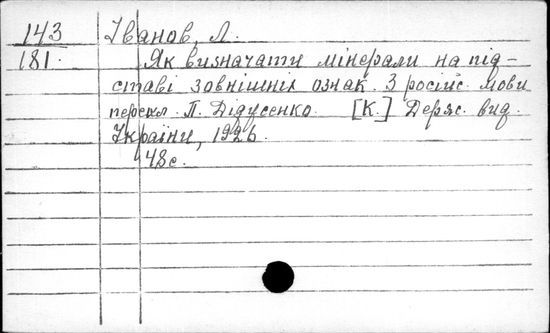 143 Іванов, Л.
181. Як визначати мінерали на під-
ставі зовнішніх ознак. З російс. мови
перекл. П. Дідусенко. [К.] Держ. вид.
України, 1926.
48 с.